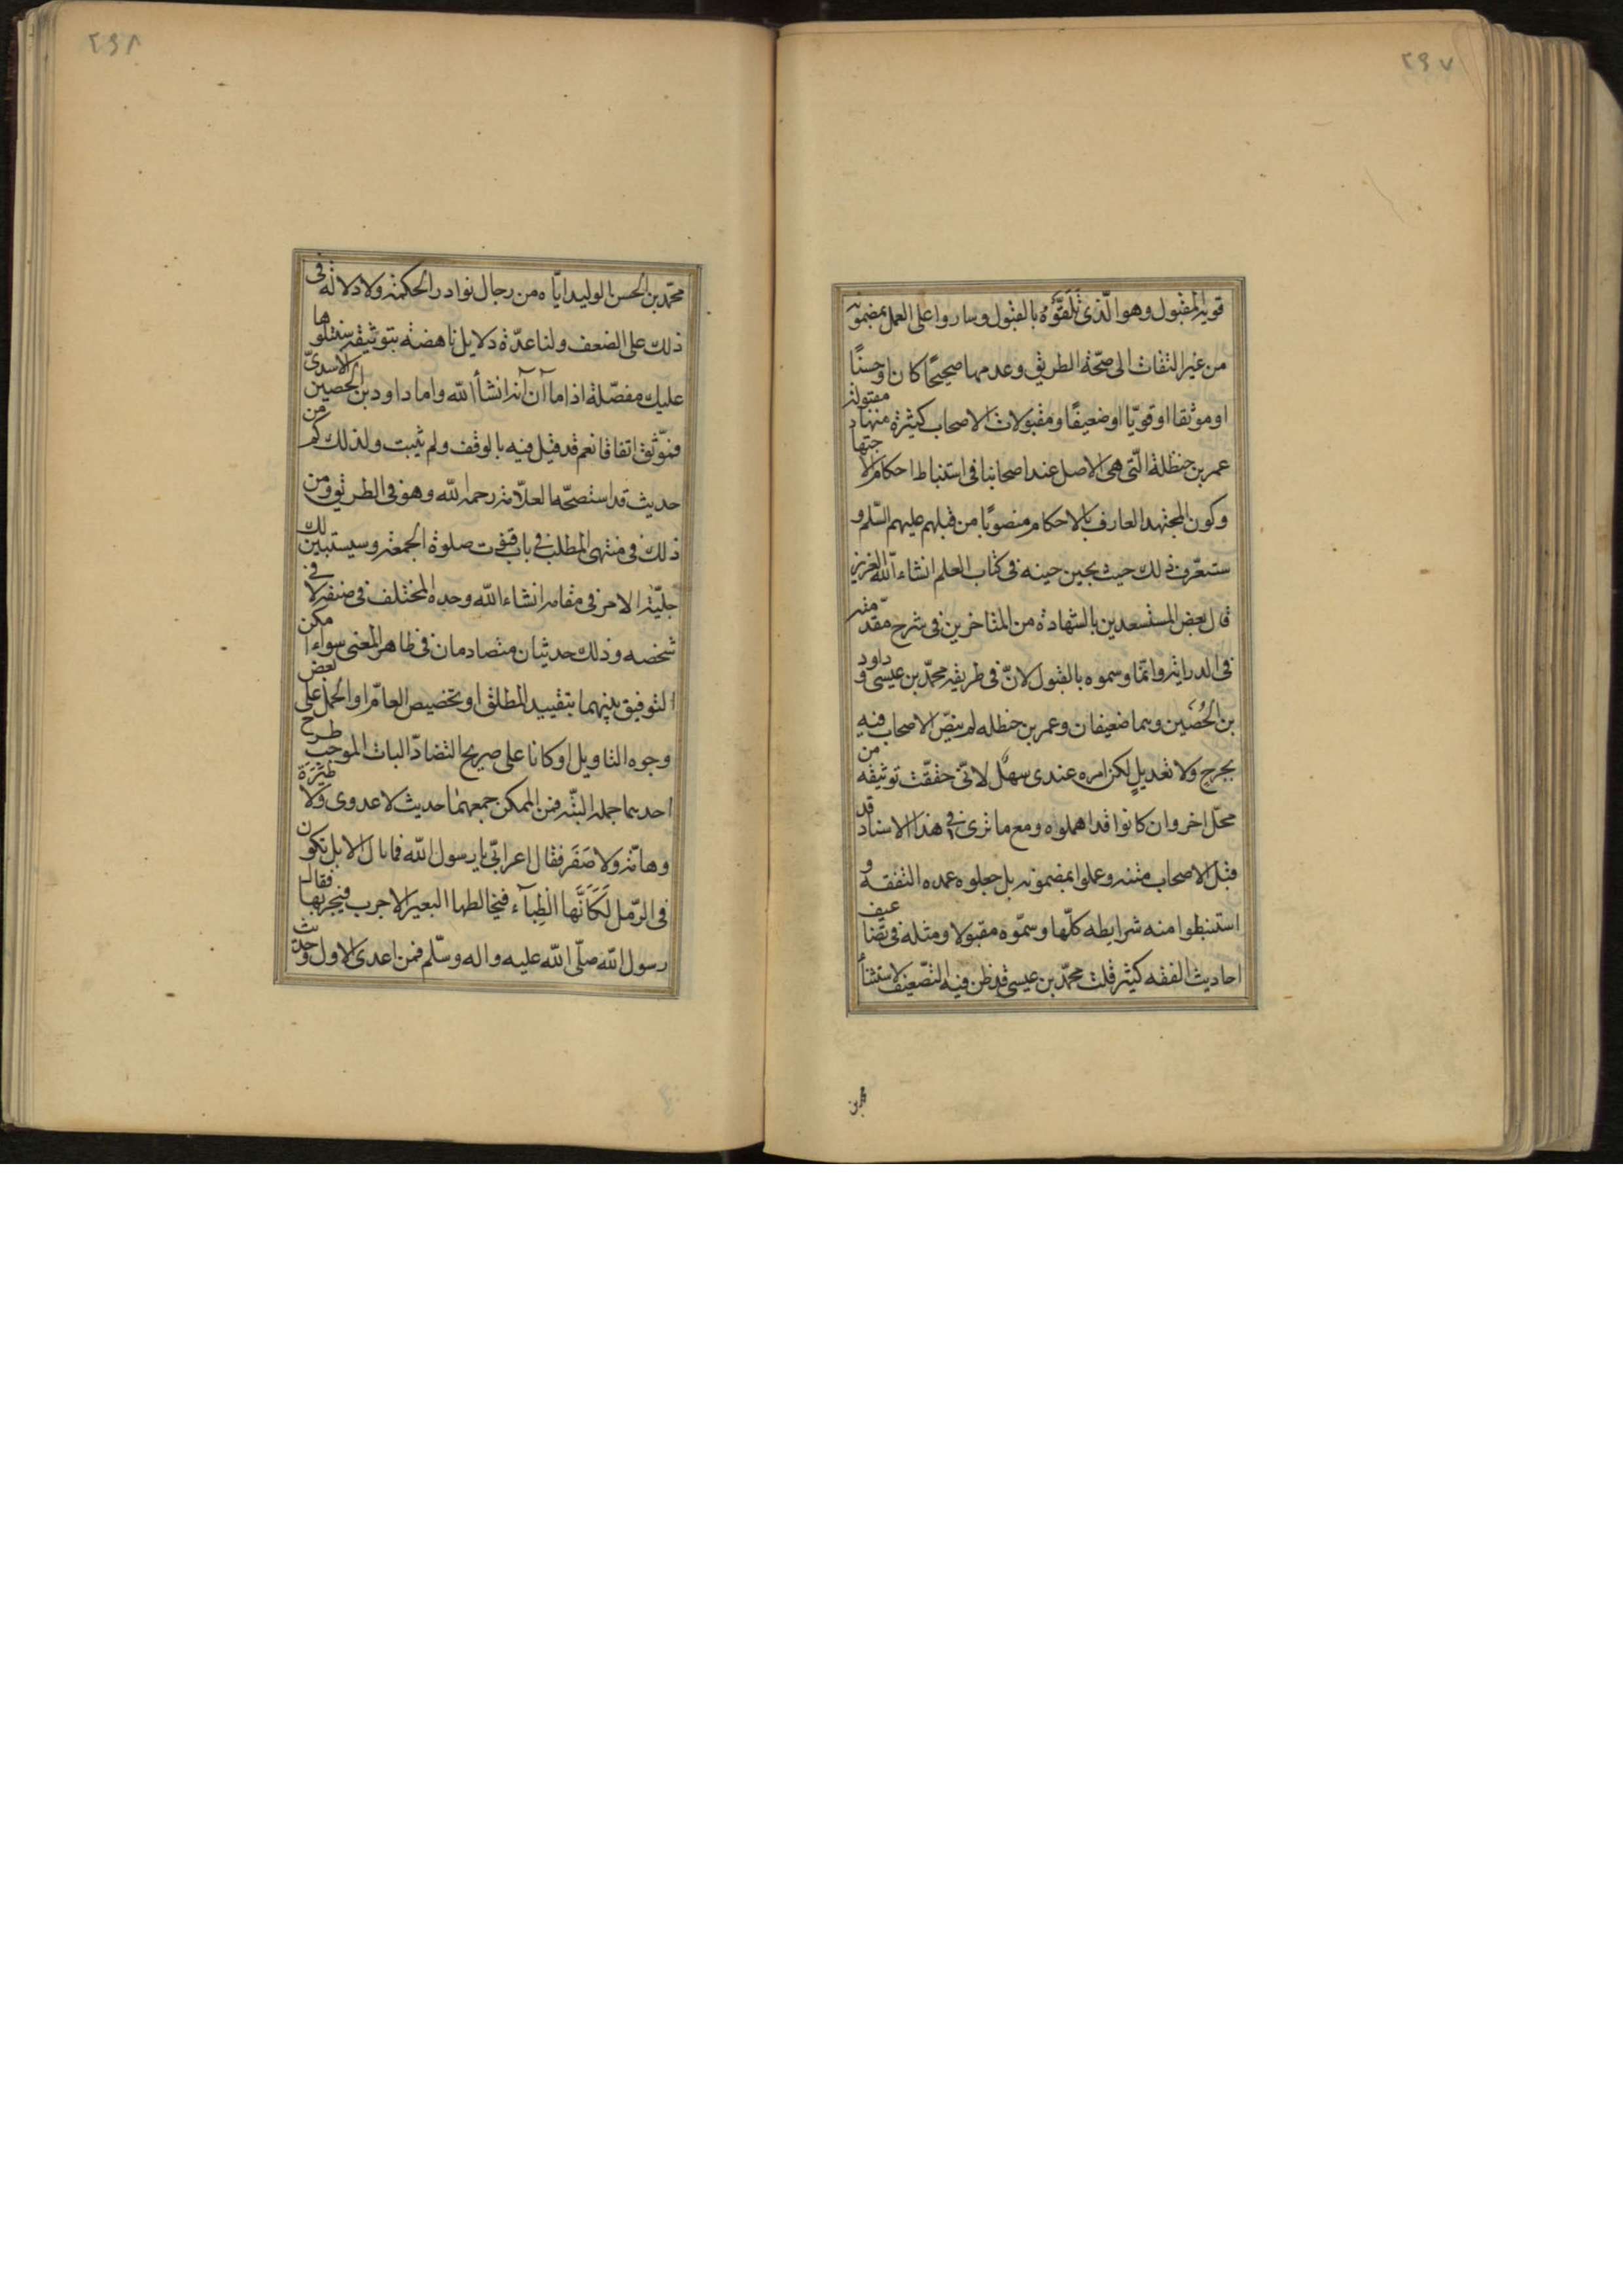 ٢٩٧
قويه المقبول وهو الّذى تَلَقَّوْهُ بالقبول وساروا على العمل بمضمونه
من غير التفات الى صحّة الطريق وعدمها صحيحًا كان او حسنًا
او موثقا او قويّا او ضعيفًا ومقبولات الاصحاب كثيرة منها مقبولة
عمر بن حنظلة الّتى هى الاصل عند اصحابنا فى استنباط احكام الاجتهاد
وكون المجتهد العارف بالاحكام منصوبًا من قبلهم عليهم السّلم و
ستعرّف ذلك حيث يحين حينه فى كتاب العلم انشاء اللّه العزيز
قال بعض المستسعدين بالشهادة من المتاخرين فى شرح مقدّمته
فى الدراية وانّما وسموه بالقبول لانّ فى طريقه محمّد بن عيسى وداود
بن الحُصَين وهما ضعيفان وعمر بن حنظله لم ينصّ الاصحاب فيه
بجرح ولا تعديلٍ لكن امره عندى سهل لانّى حققّت توثيقه من
محلّ اخر وان كانوا قد اهملوه ومع ما ترى فى هذا الاسناد قد
قبل الاصحاب متنه وعملوا بمضمونه بل جعلوه عمده التفقه و
استنبطوا منه شرايطه كلّها وسمّوه مقبولا ومثله فى تضاعيف
احاديث الفقه كثير قلت محمّد بن عيسى قد ظن فيه التّضعيف لاستثنأ
٢٩٨
محمّد بن الحسن الوليد ايّاه من رجال نوادر الحكمة ولا دلالة فى
ذلك على الضعف ولنا عدّة دلايل ناهضة بتوثيقه سنتلوها
عليك مفصّلة اذا ما آن آنه انشأ اللّه واما داود بن الحصين الاسدىّ
فموّثق اتفاقا نعم قد قيل فيه بالوقف ولم يثبت ولذلك كم من
حديث قد استصحّه العلاّمة رحمه اللّه وهو فى الطريق ومن
ذلك فى منتهى المطلب فى باب قنوت صلوة الجمعة وسيستبين لك
جليّة الامر فى مقامه انشاء اللّه وحده المختلف فى صنفه لا فى
شخصه وذلك حديثان متصادمان فى ظاهر المعنى سواء امكن
التوفيق بينهما بتقييد المطلق او تخصيص العامّ او الحمل على بعض
وجوه التاويل او كانا على صريح التضادّ البات الموجب طرح
احدهما جملة البتّه فمن الممكن جمعهما حديث لا عدوى ولا طِيَرَة
وهامّة ولا صَفَر فقال اعرابّى يا رسول اللّه فما بال الابل تكون
فى الرّمل لَكَأنَّها الظِبآء فيخالطها البعير الاجرب فيجربها فقال
رسول اللّه صلّى اللّه عليه واله وسّلم فمن اعدى الاول وحديث